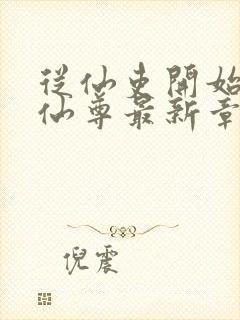 從仙吏開始
仙尊最新章
倪震